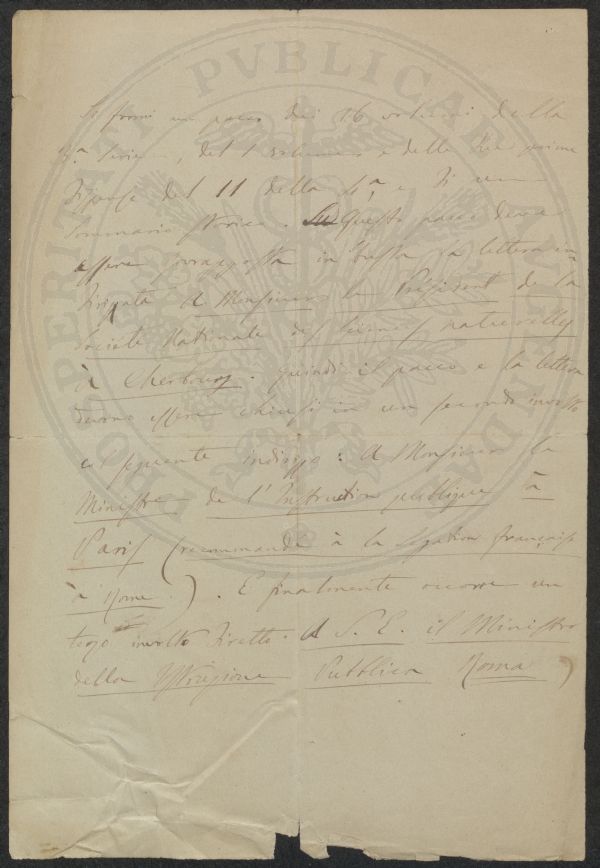 Si formi un pacco dei 16 volumi della
3.a Serie, del 1 volume e delle due prime
dispense del II della 4.a e di un
Sommario storico. Questo pacco deve
essere sovrapposta in busta la lettera
diretta A Monsieur le Président de la
Société Nationale des Sciences naturelles
à Cherbourg. quindi il pacco e la lettera
devono essere chiusi in un secondo involto
col seguente indirizzo: A Monsieur le
Ministre de l'Instruction publique à
Paris (recommandé à la légation française
à Rome.). E finalmente occorre un
terzo involto diretto. A S. E. il Ministro
della Istruzione Pubblica Roma)
PROSPERITATI PVBLICAE AVGENDAE